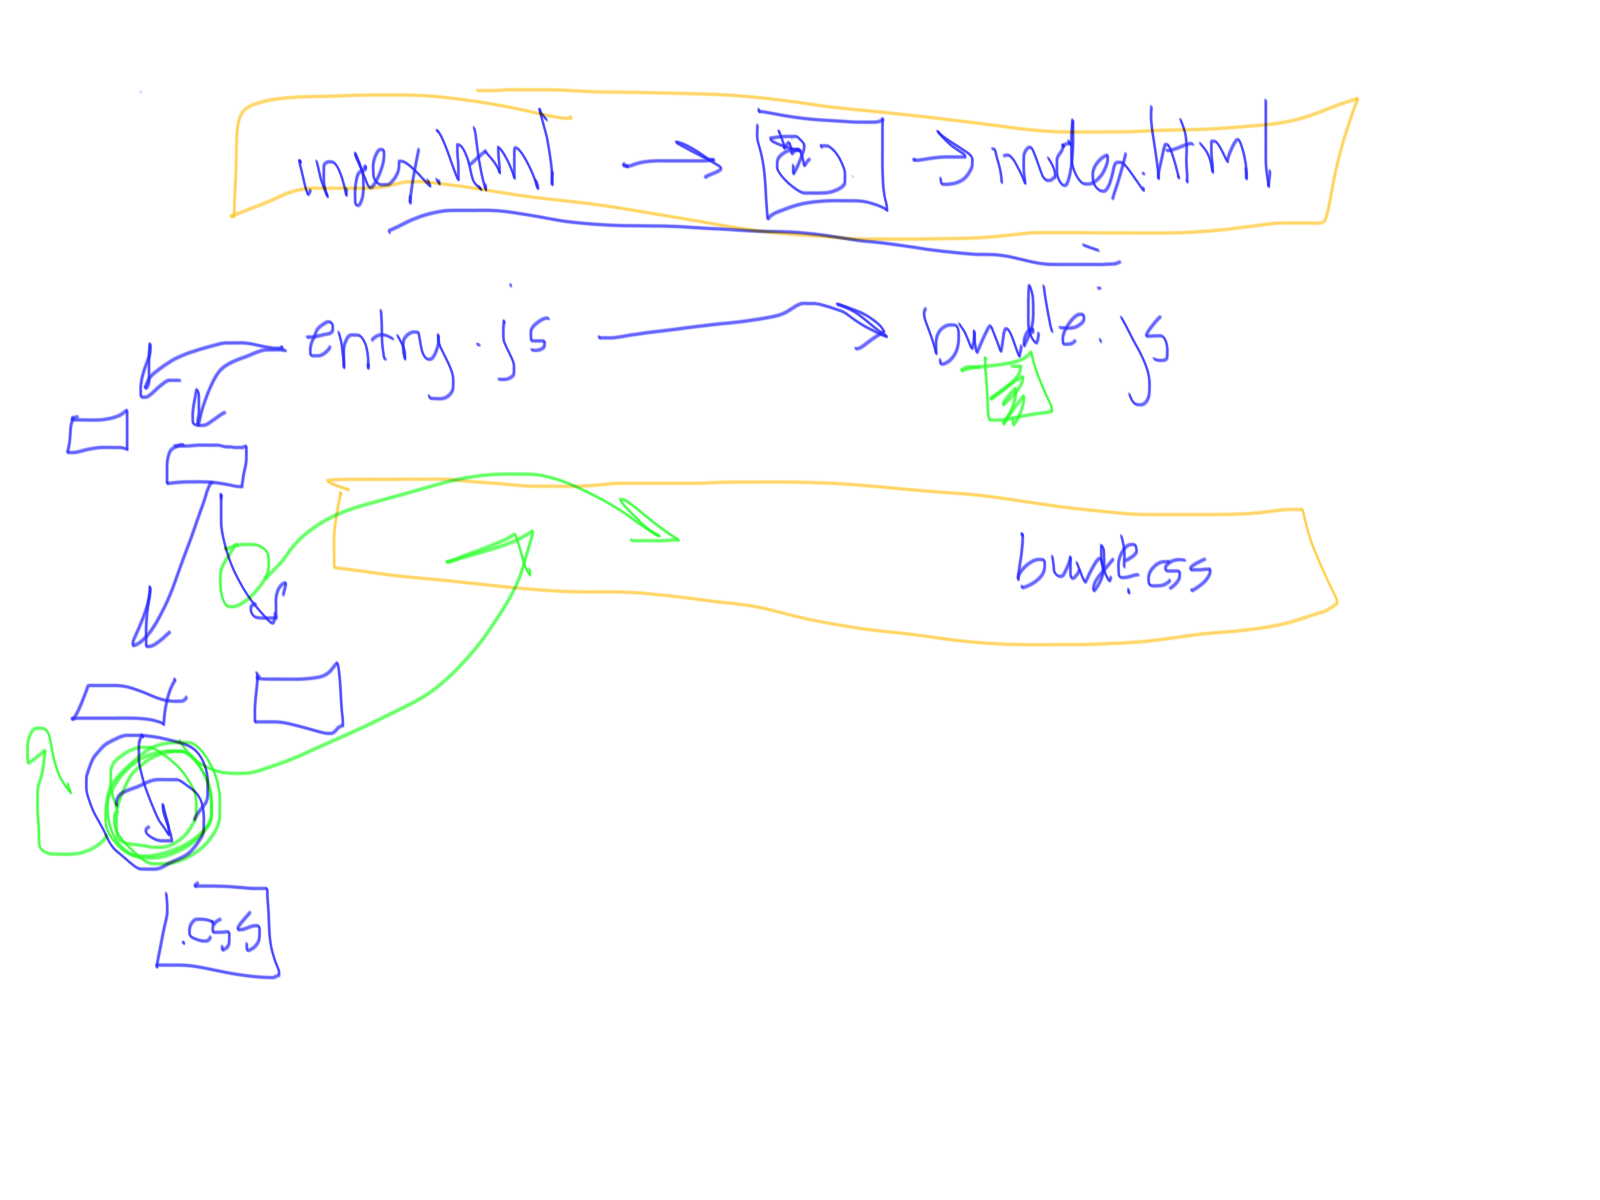 index.html → → index.html
entry.js → bundle.js
bundle.css
.css